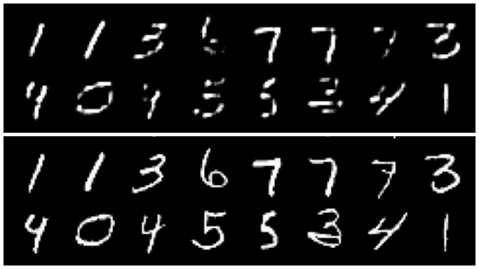 1 1 3 6 7 7 7 3
4 0 4 5 5 3 4 1
1 1 3 6 7 7 7 3
4 0 4 5 5 3 4 1